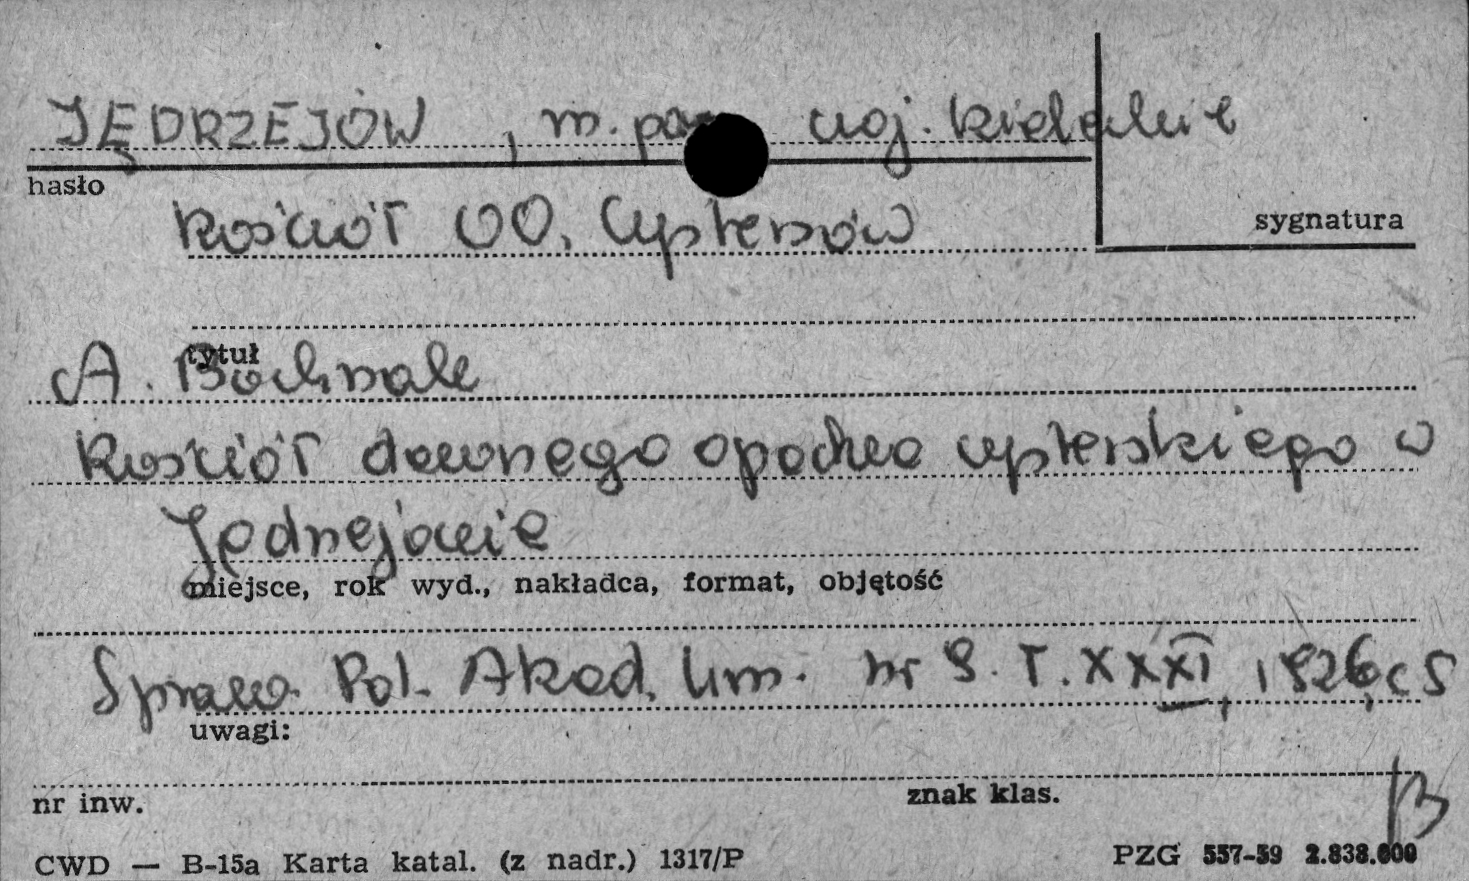 JĘDRZEJÓW, m. pow. woj. kieleckie
hasło
Kościół OO. Cystersów
sygnatura
tytuł
A. Bochnak
Kościół dawnego opactwa cysterskiego w
Jędrzejowie
miejsce, rok wyd., nakładca, format, objętość
Spraw. Pol. Akad. Um. nr 9. T. XXXI, 1926, s 5
uwagi:
nr inw.
znak klas.
B
CWD — B-15a Karta katal. (z nadr.) 1317/P
PZG 557-59 2.838.000